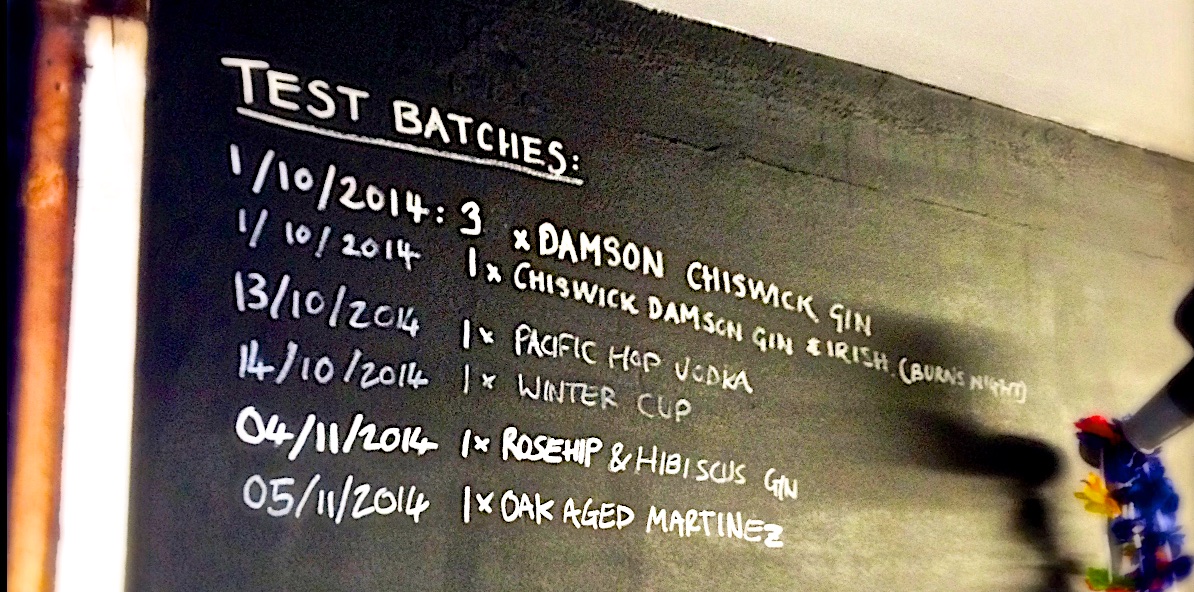 TEST BATCHES:
1/10/2014: 3 x DAMSON CHISWICK GIN
1/10/2014 1 x CHISWICK DAMSON GIN & IRISH (BURNS NIGHT)
13/10/2014 1 x PACIFIC HOP VODKA
14/10/2014 1 x WINTER CUP
04/11/2014 1 x ROSEHIP & HIBISCUS GIN
05/11/2014 1 x OAK AGED MARTINEZ